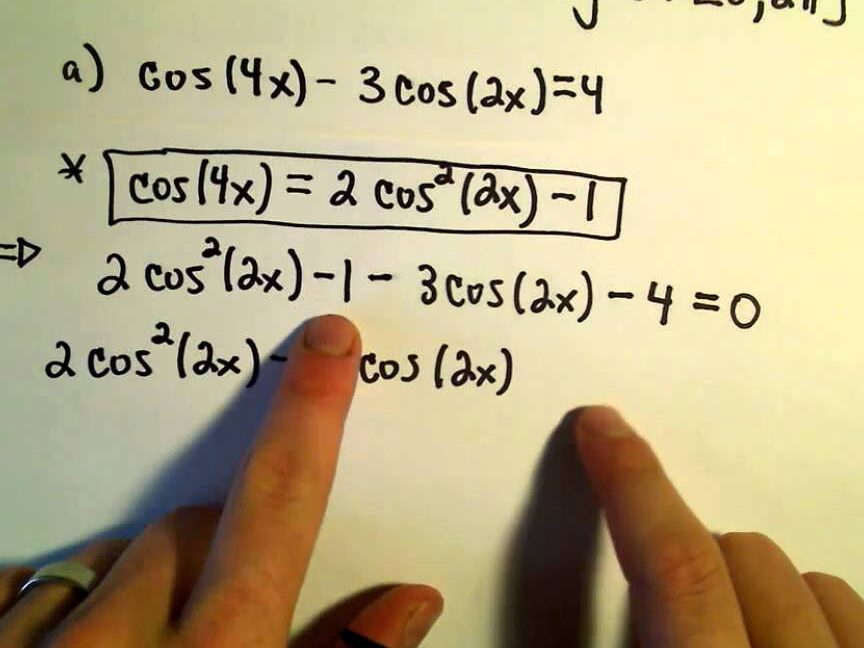 a) cos(4x) - 3cos(2x)=4
* cos(4x) = 2 cos²(2x) - 1
⇒ 2 cos²(2x) - 1 - 3cos(2x) - 4 = 0
2 cos²(2x) - cos(2x)